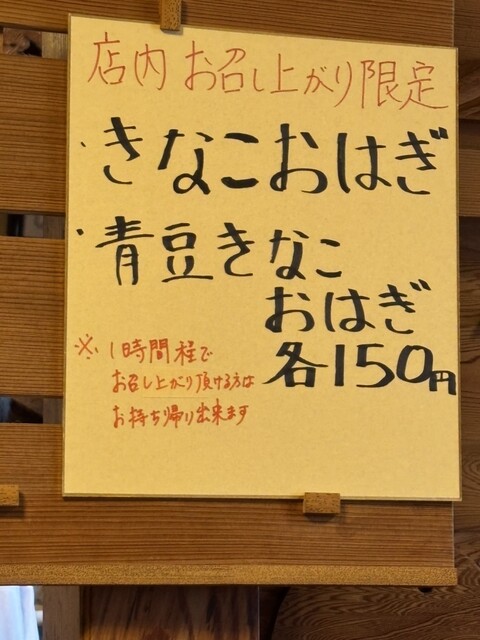 店内 お召し上がり限定
・きなこおはぎ
・青豆きなこ
おはぎ
各150円
※1時間程で
お召し上がり頂ける方は
お持ち帰り出来ます